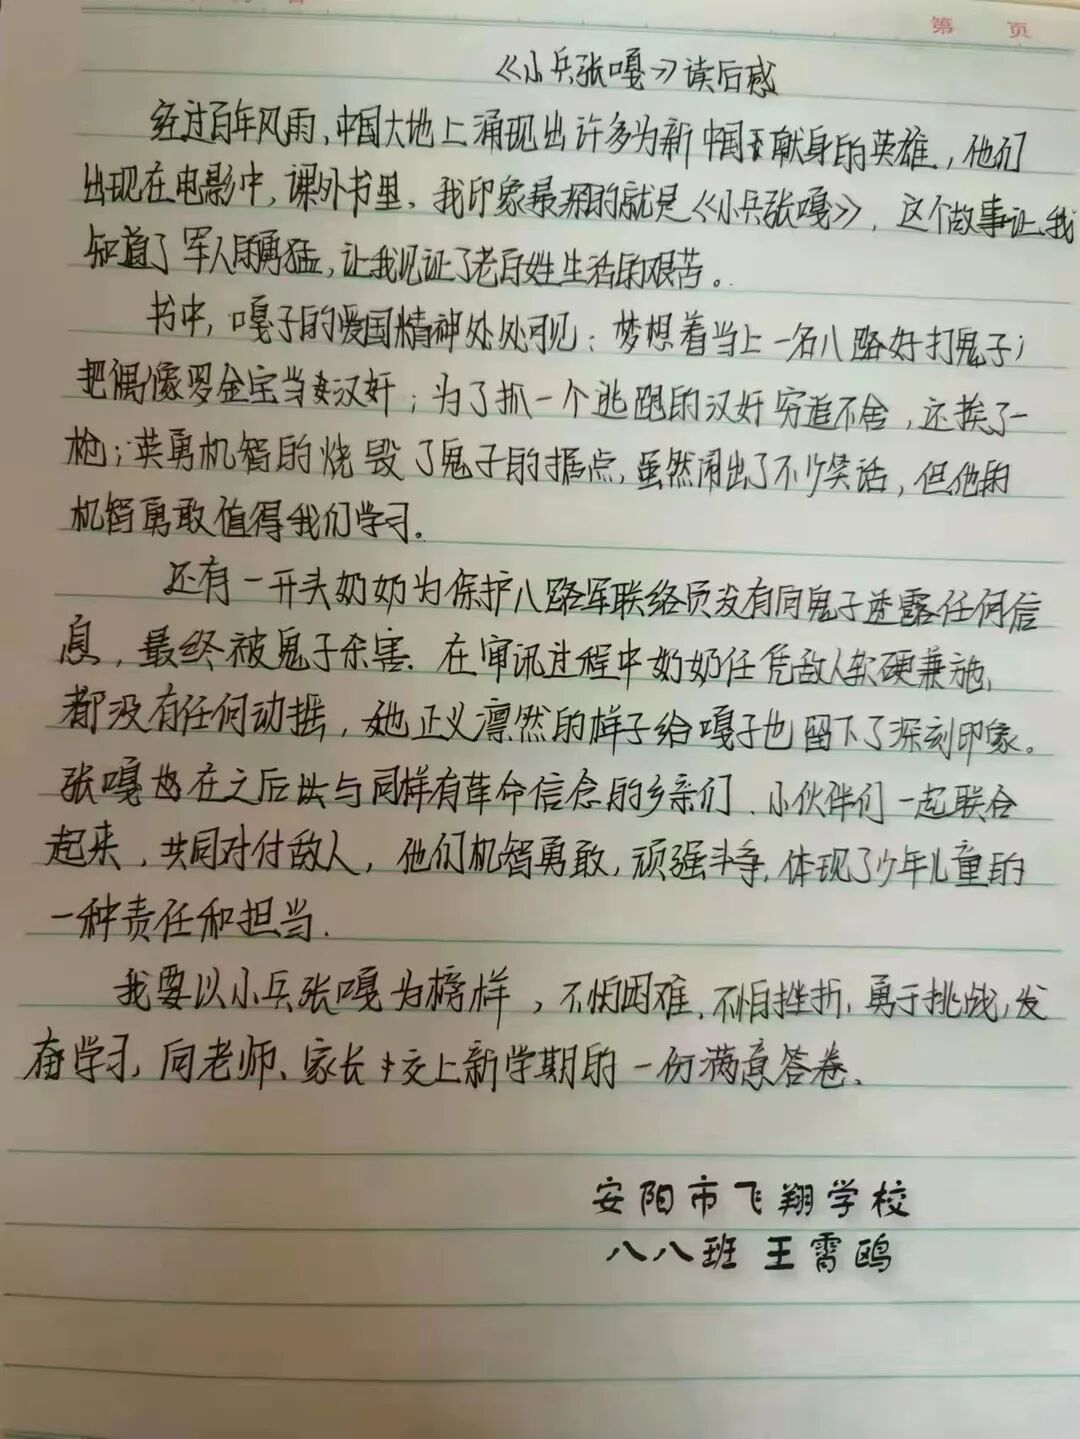 第 页
《小兵张嘎》读后感
经过百年风雨,中国大地上涌现出许多为新中国献身的英雄,他们
出现在电影中,课外书里,我印象最深的就是《小兵张嘎》,这个故事让我
知道了军人的勇猛,让我见证了老百姓生活的艰苦。
书中,嘎子的爱国精神处处可见:梦想着当上一名八路好打鬼子;
把偶像罗金宝当汉奸;为了抓一个逃跑的汉奸穷追不舍,还挨了一
枪;英勇机智的烧毁了鬼子的据点,虽然闹出了不少笑话,但他的
机智勇敢值得我们学习.
还有一开头奶奶为保护八路军联络员没有向鬼子透露任何信
息,最终被鬼子杀害.在审讯过程中奶奶任凭敌人软硬兼施,
都没有任何动摇,她正义凛然的样子给嘎子也留下了深刻印象。
张嘎也在之后与同样有革命信念的乡亲们、小伙伴们一起联合
起来,共同对付敌人,他们机智勇敢,顽强斗争,体现了少年儿童的
一种责任和担当.
我要以小兵张嘎为榜样,不怕困难、不怕挫折,勇于挑战,发
奋学习,向老师、家长交上新学期的一份满意答卷、
安阳市飞翔学校
八八班 王霄鸥